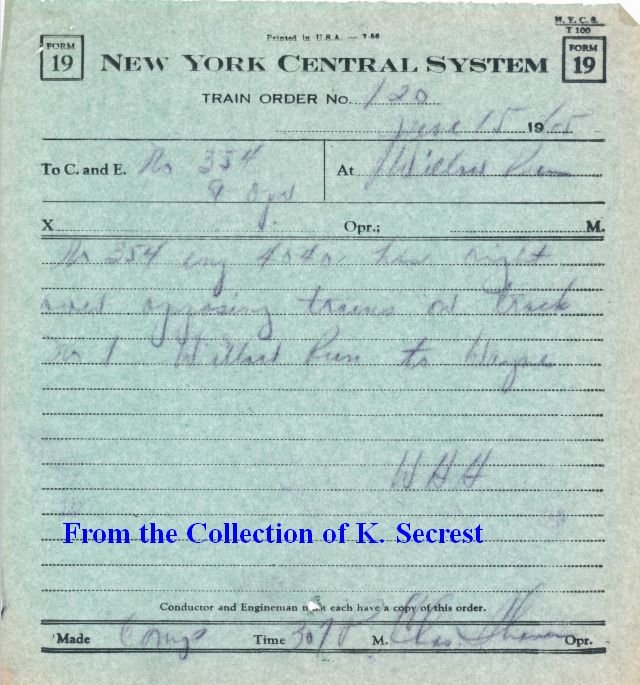 N. Y. C. S.
T 100
Printed in U.S.A. — 7-56
FORM 19
NEW YORK CENTRAL SYSTEM
FORM 19
TRAIN ORDER No. 120
June 15 1965
To C. and E. No 354 At Willard Run
& Opr
X Opr.; M.
No 354 eng 4040 has right
over opposing trains on track
No 1 Willard Run to Wayne
W H H
From the Collection of K. Secrest
Conductor and Engineman must each have a copy of this order.
Made Comp Time 307 P M. Chas. Opr.